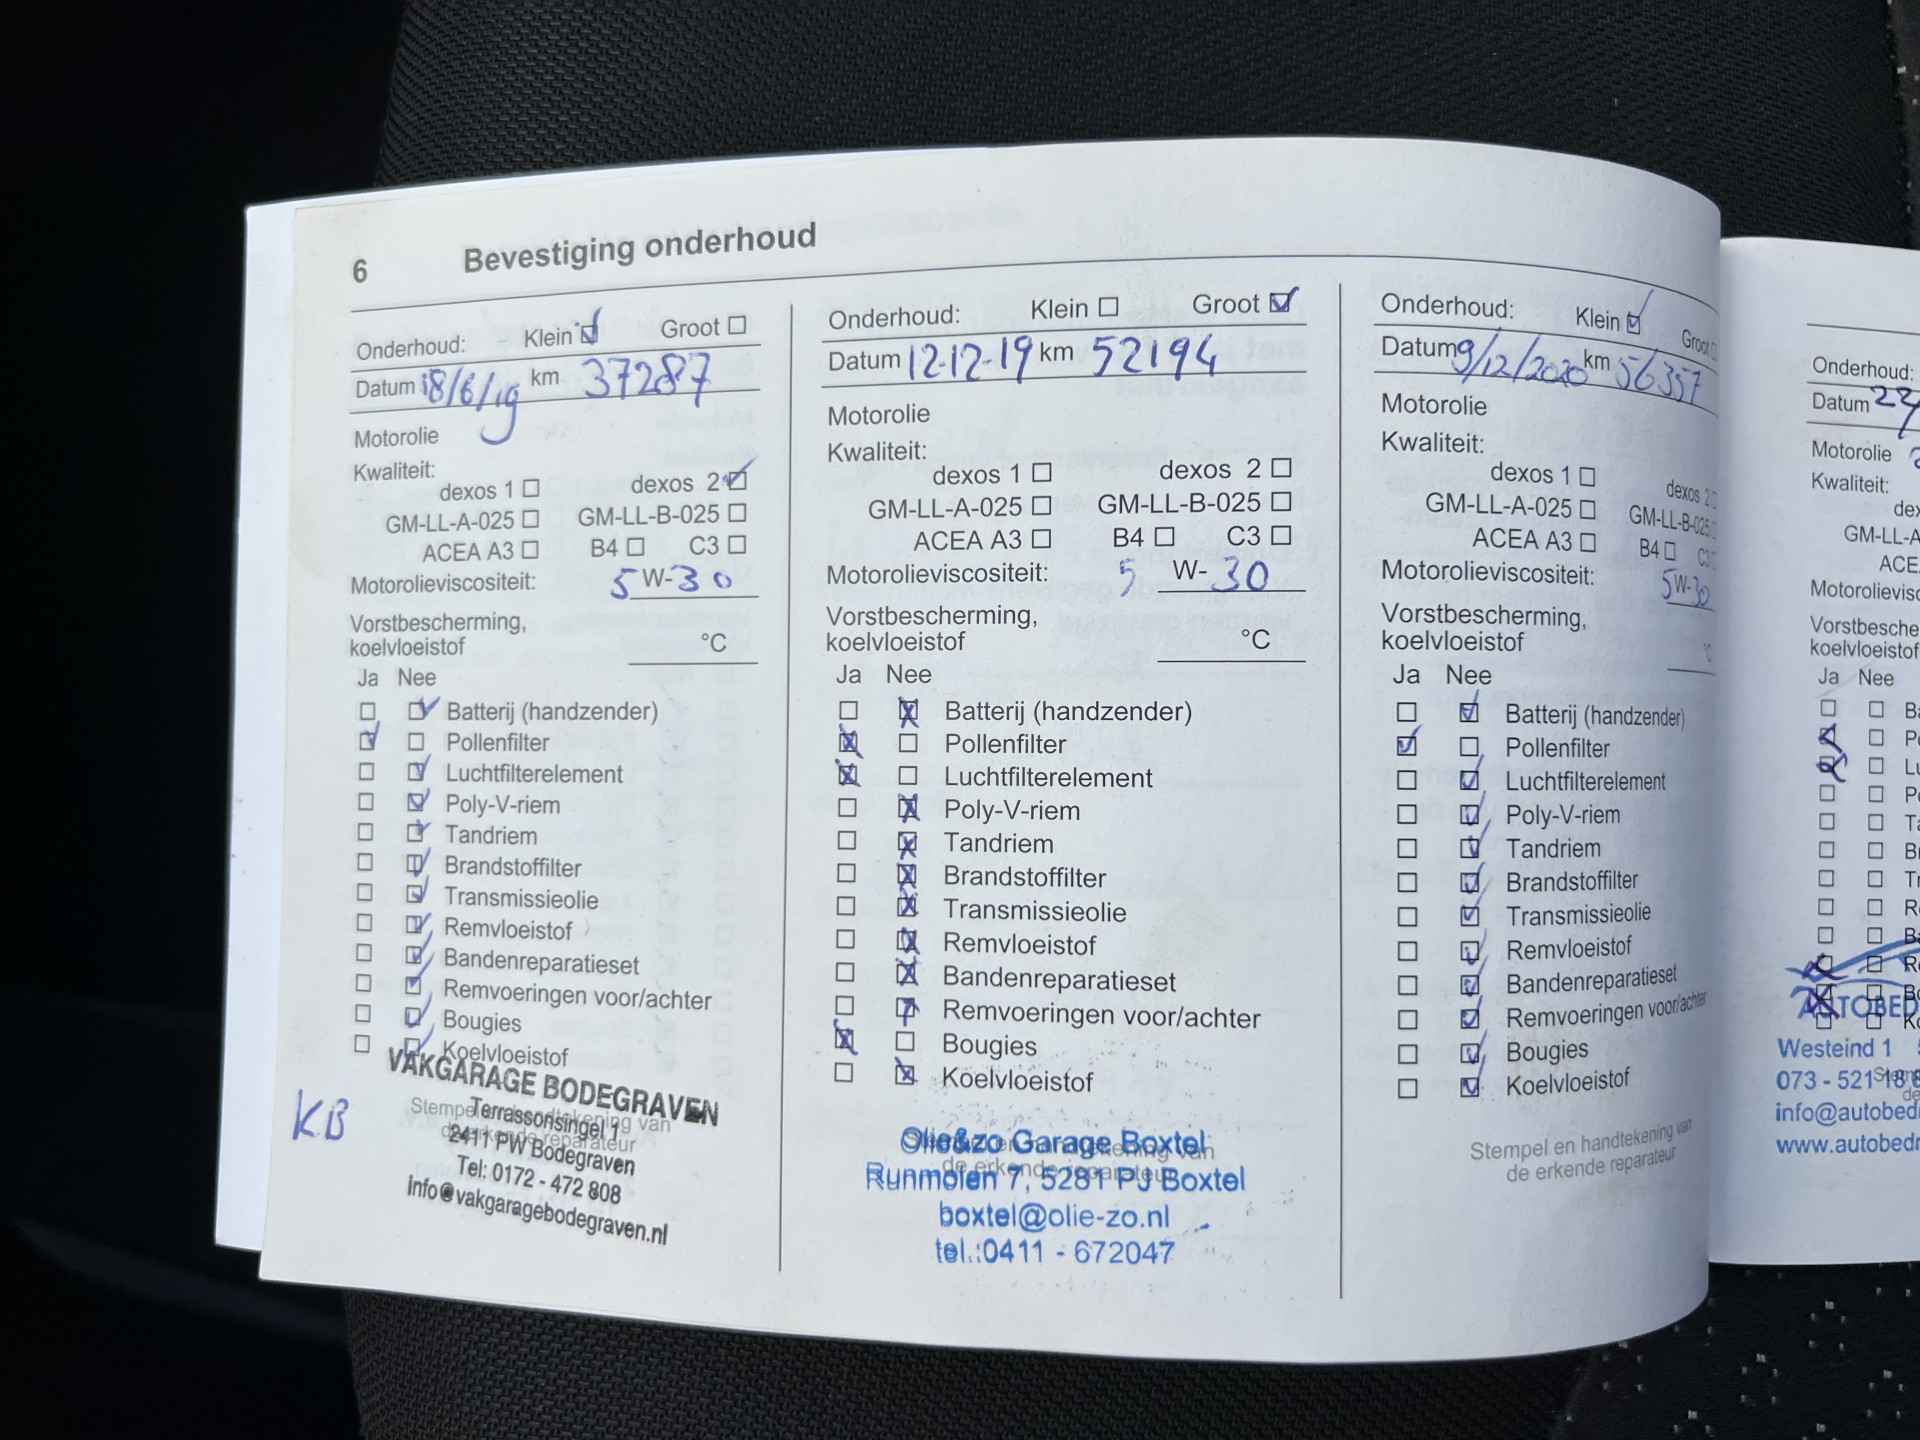 6 Bevestiging onderhoud
Onderhoud: Klein Groot
Datum 18/6/19 km 37287
Motorolie
Kwaliteit:
dexos 1 dexos 2
GM-LL-A-025 GM-LL-B-025
ACEA A3 B4 C3
Motorolieviscositeit: 5 W-30
Vorstbescherming,
koelvloeistof °C
Ja Nee
Batterij (handzender)
Pollenfilter
Luchtfilterelement
Poly-V-riem
Tandriem
Brandstoffilter
Transmissieolie
Remvloeistof
Bandenreparatieset
Remvoeringen voor/achter
Bougies
Koelvloeistof
KB
Stempel en handtekening van
de erkende reparateur
VAKGARAGE BODEGRAVEN
Terrassonsingel 1
2411 PW Bodegraven
Tel: 0172 - 472 808
info@vakgaragebodegraven.nl
Onderhoud: Klein Groot
Datum 12-12-19 km 52194
Motorolie
Kwaliteit:
dexos 1 dexos 2
GM-LL-A-025 GM-LL-B-025
ACEA A3 B4 C3
Motorolieviscositeit: 5 W-30
Vorstbescherming,
koelvloeistof °C
Ja Nee
Batterij (handzender)
Pollenfilter
Luchtfilterelement
Poly-V-riem
Tandriem
Brandstoffilter
Transmissieolie
Remvloeistof
Bandenreparatieset
Remvoeringen voor/achter
Bougies
Koelvloeistof
Stempel en handtekening van
de erkende reparateur
Olie&zo Garage Boxtel
Runmolen 7, 5281 PJ Boxtel
boxtel@olie-zo.nl
tel.:0411 - 672047
Onderhoud: Klein Groot
Datum 9/12/2020 km 56357
Motorolie
Kwaliteit:
dexos 1 dexos 2
GM-LL-A-025 GM-LL-B-025
ACEA A3 B4 C3
Motorolieviscositeit: 5W-30
Vorstbescherming,
koelvloeistof °C
Ja Nee
Batterij (handzender)
Pollenfilter
Luchtfilterelement
Poly-V-riem
Tandriem
Brandstoffilter
Transmissieolie
Remvloeistof
Bandenreparatieset
Remvoeringen voor/achter
Bougies
Koelvloeistof
Stempel en handtekening van
de erkende reparateur
Onderhoud:
Datum
Motorolie
Kwaliteit:
GM-LL-A
ACE
koelvloeistof
Ja Nee
AUTOBED
Westeind 1
073 - 521 18
info@autobed
www.autobed